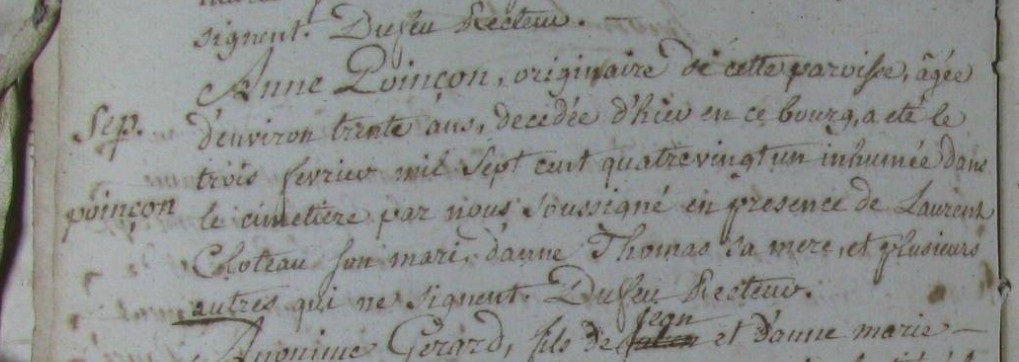 signent. Dufeu Recteur. —
Anne Poinçon, originaire de cette paroisse, âgée
Sep. d'environ trente ans, decedée d'hier en ce bourg, a eté le
trois fevrier mil sept cent quatrevingt un inhumée dans
poinçon le cimetiere par nous soussigné en presence de Laurent
Cloteau son mari, d'anne Thomas sa mere, et plusieurs
autres qui ne signent. Dufeu Recteur.
Anonime Gerard, fils de Jean et d'anne marie —